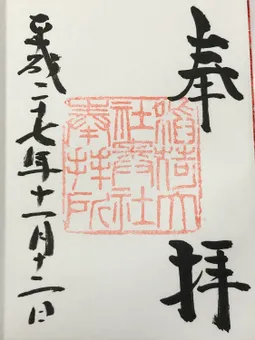 奉拝
稲荷大
社奥社
奉拝所
平成二七年十一月十二日